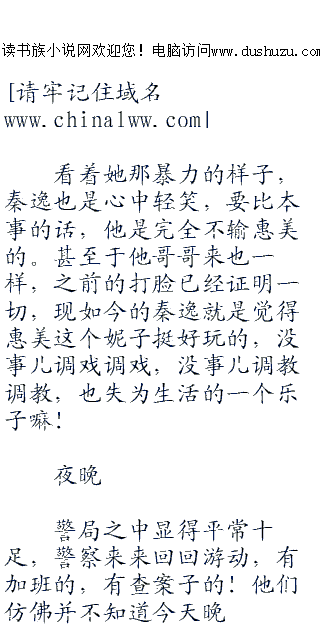 读书族小说网欢迎您！电脑访问www.dushuzu.com
[请牢记住域名
www.china1ww.com|
看着她那暴力的样子，
秦逸也是心中轻笑，要比本
事的话，他是完全不输惠美
的。甚至于他哥哥来也一
样，之前的打脸已经证明一
切，现如今的秦逸就是觉得
惠美这个妮子挺好玩的，没
事儿调戏调戏，没事儿调教
调教，也失为生活的一个乐
子嘛！
夜晚
警局之中显得平常十
足，警察来来回回游动，有
加班的，有查案子的！他们
仿佛并不知道今天晚